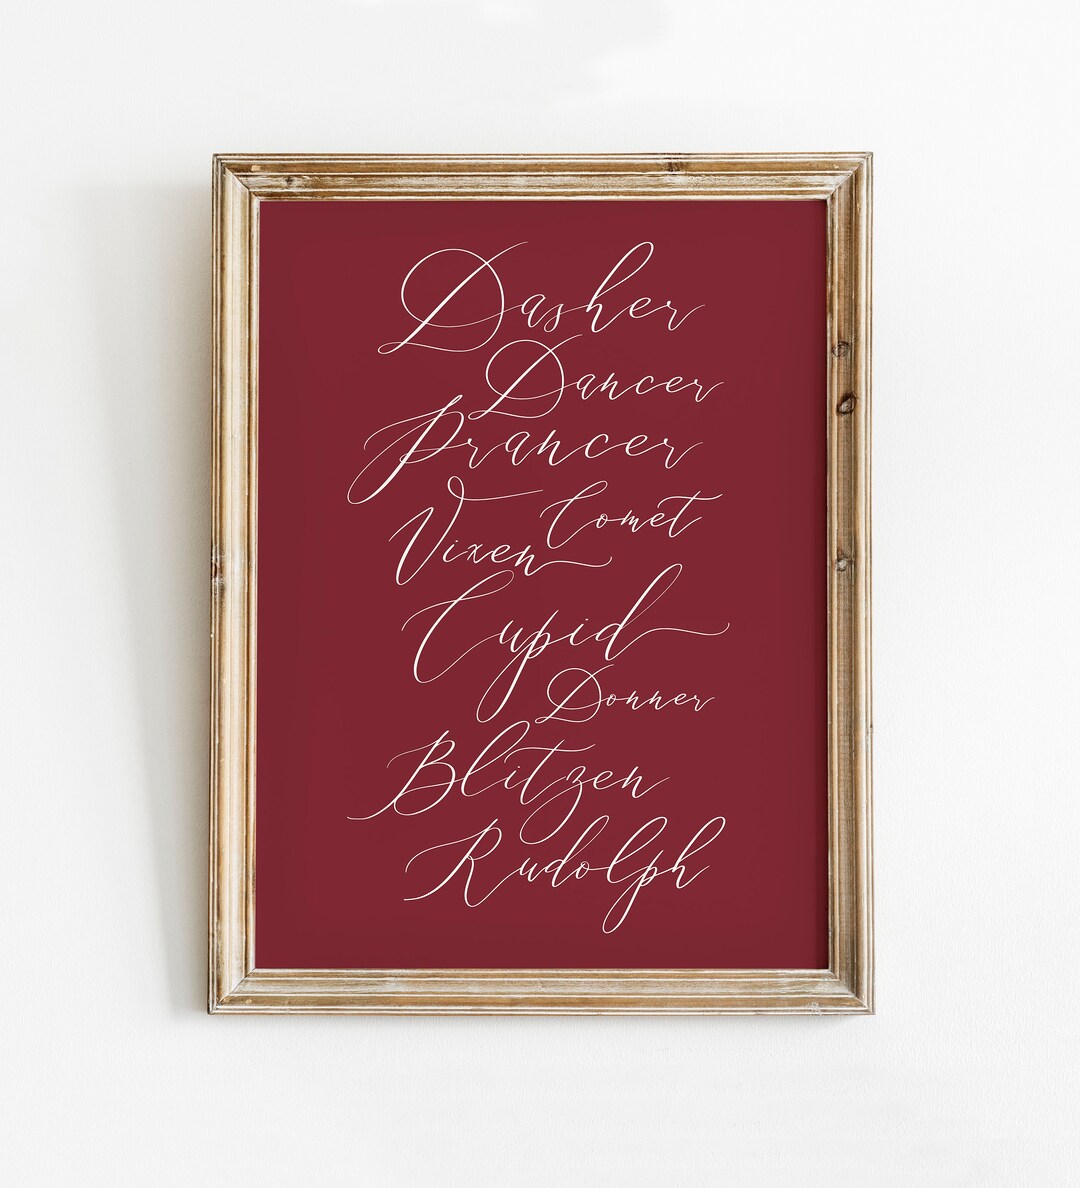 Dasher
Dancer
Prancer
Vixen Comet
Cupid
Donner
Blitzen
Rudolph